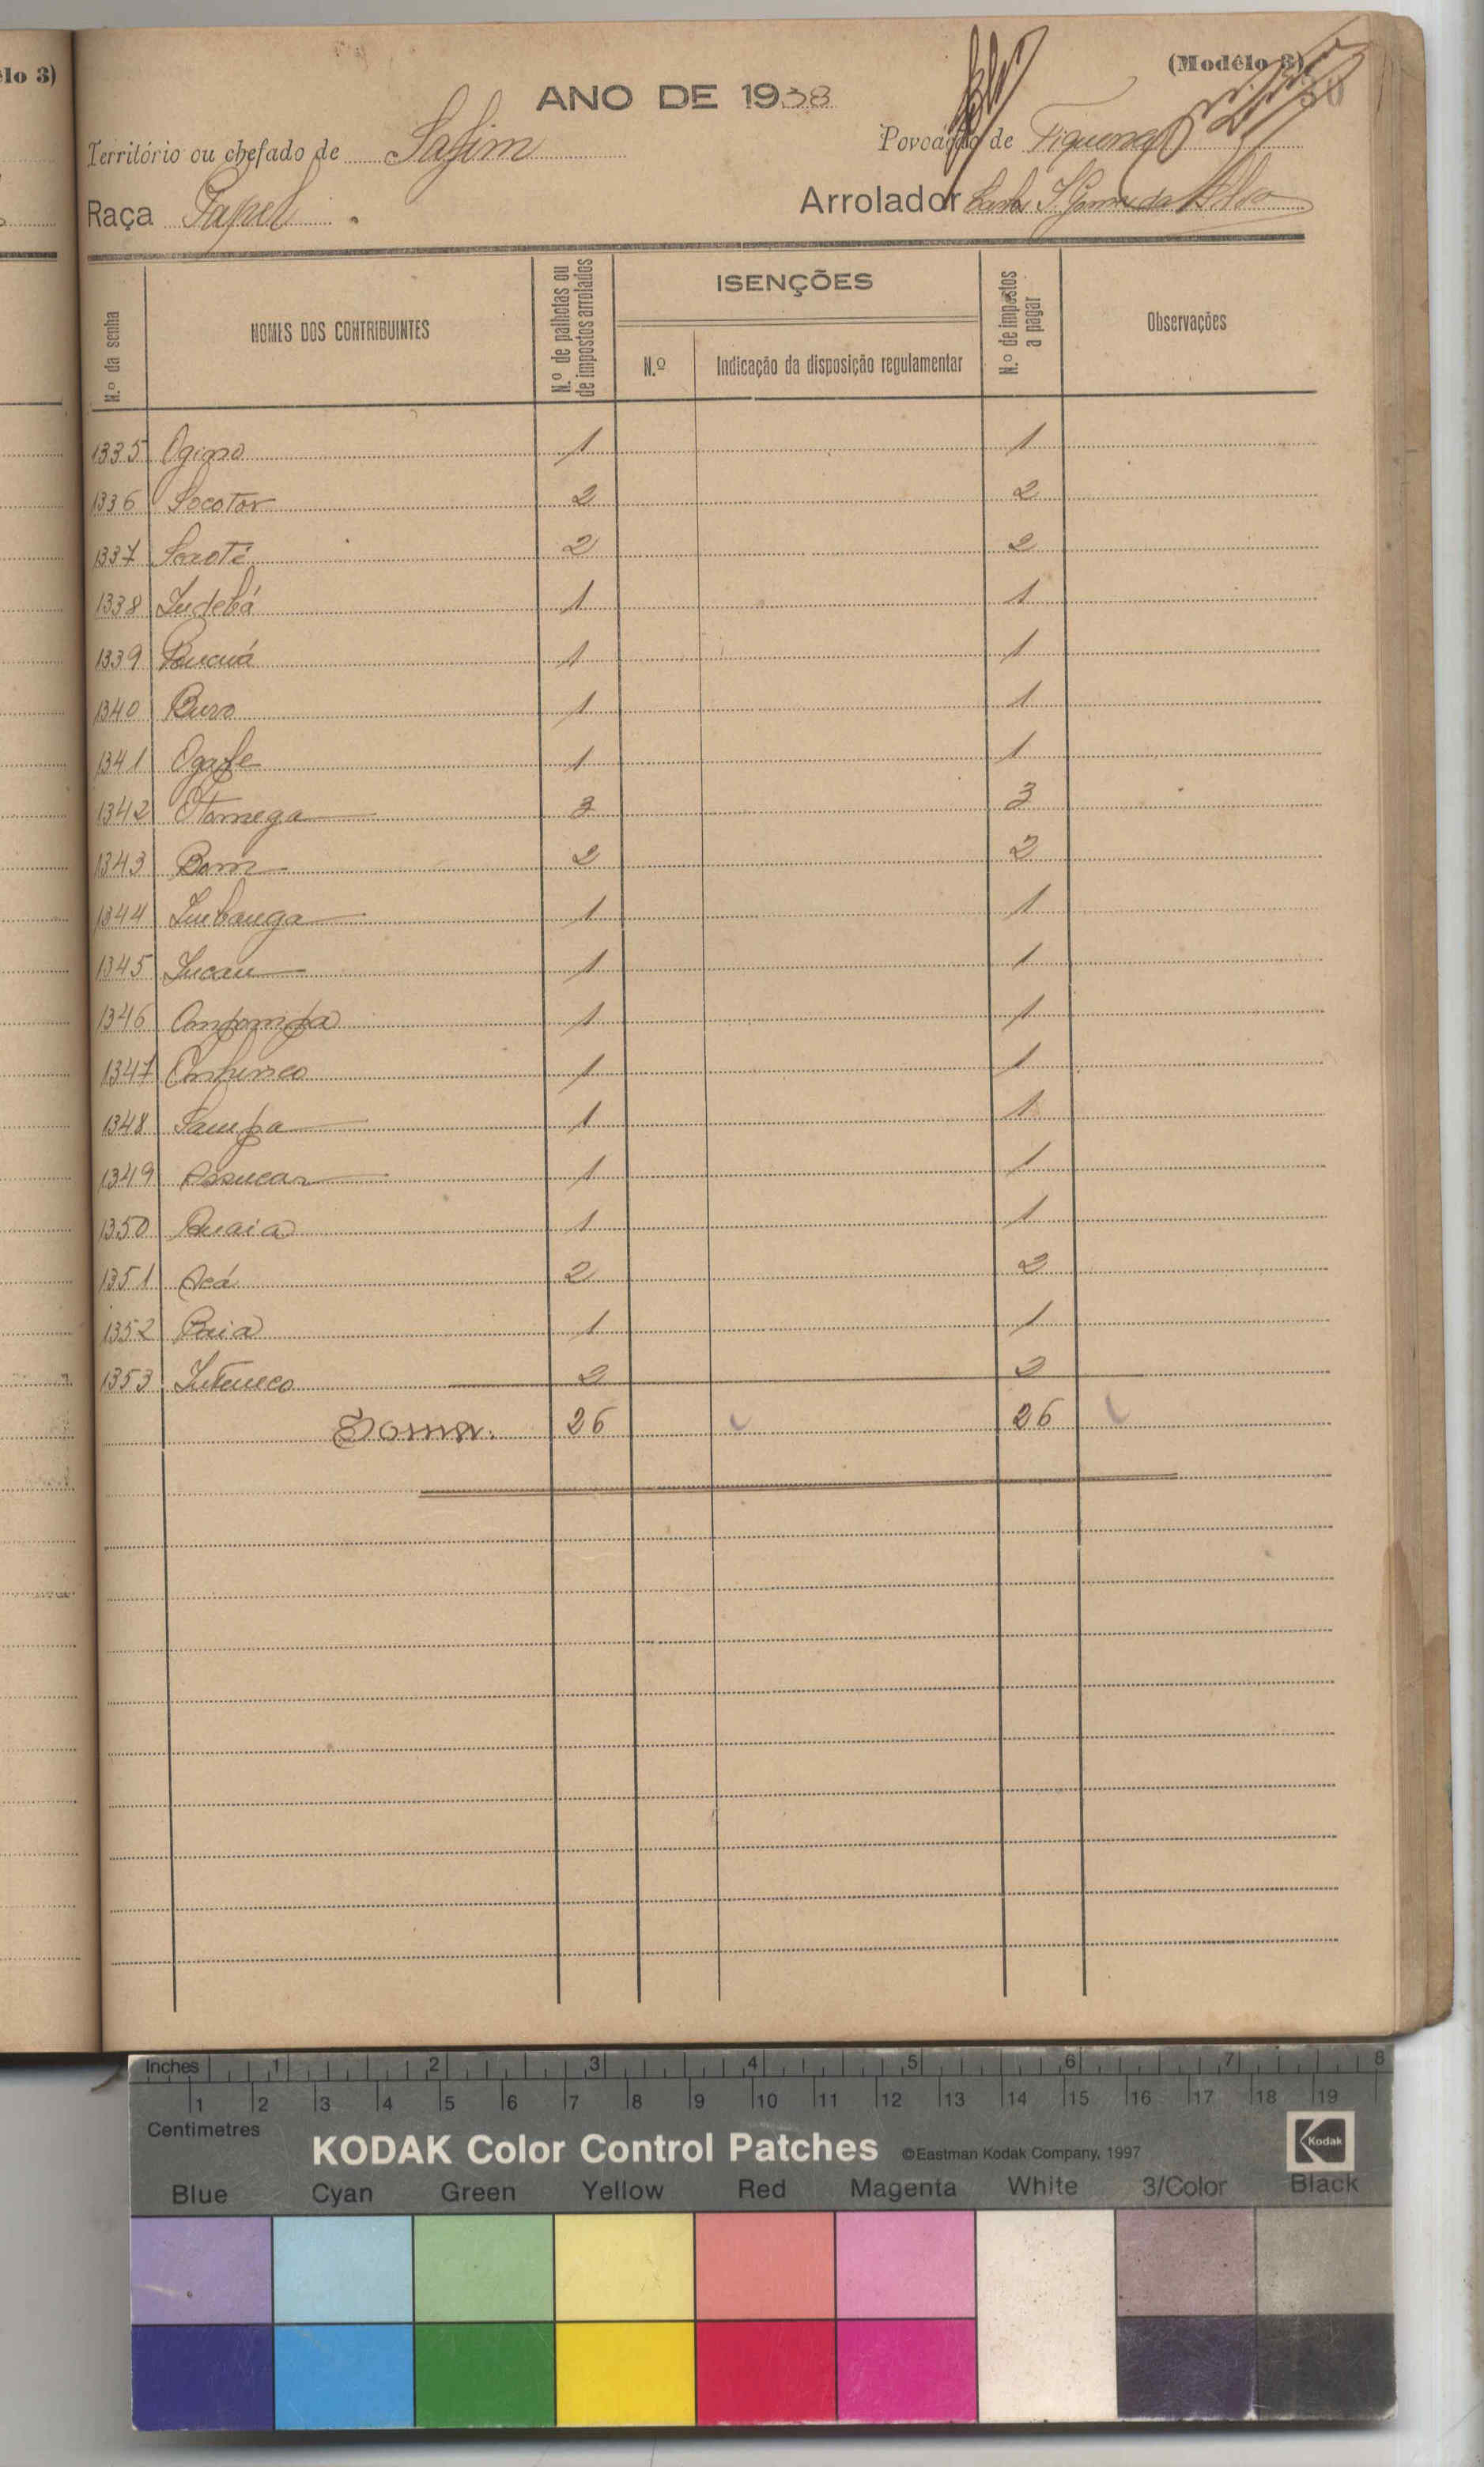 êlo 3)
(Modêlo 3)
ANO DE 1938
Território ou chefado de Safim
Povoação de
Raça Papel
Arrolador
N.º da senha
NOMES DOS CONTRIBUINTES
N.º de palhotas ou de impostos arrolados
ISENÇÕES
N.º
Indicação da disposição regulamentar
N.º de impostos a pagar
Observações
1335 1 1
1336 Socotor 2 2
1337 2 2
1338 1 1
1339 1 1
1340 Buro 1 1
1341 Ogafe 1 1
1342 Otomega 3 3
1343 Bom 2 2
1344 1 1
1345 1 1
1346 Ompompa 1 1
1347 1 1
1348 Sampa 1 1
1349 Assucar 1 1
1350 Buaia 1 1
1351 Acá 2 2
1352 1 1
1353 2 2
Soma. 26 26
Inches 1 2 3 4 5 6 7 8
1 2 3 4 5 6 7 8 9 10 11 12 13 14 15 16 17 18 19
Centimetres
KODAK Color Control Patches ©Eastman Kodak Company, 1997
Kodak
Blue Cyan Green Yellow Red Magenta White 3/Color Black